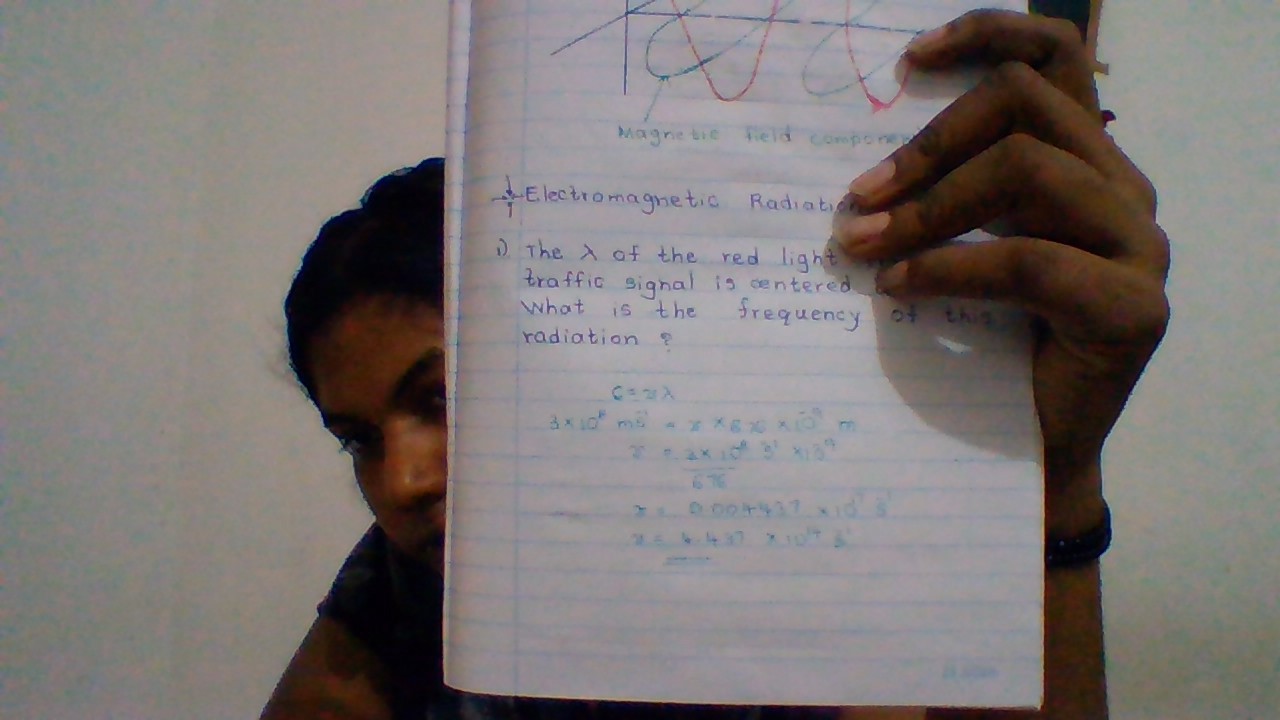 Magnetic field componen
Electromagnetic Radiation
i) The λ of the red light
traffic signal is centered
What is the frequency of this
radiation ?
C = νλ
3 × 10⁸ ms⁻¹ = ν × 676 × 10⁻⁹ m
ν = 3 × 10⁸ s⁻¹ × 10⁹
676
ν = 0.004437 × 10¹⁷ s⁻¹
ν = 4.437 × 10¹⁴ s⁻¹